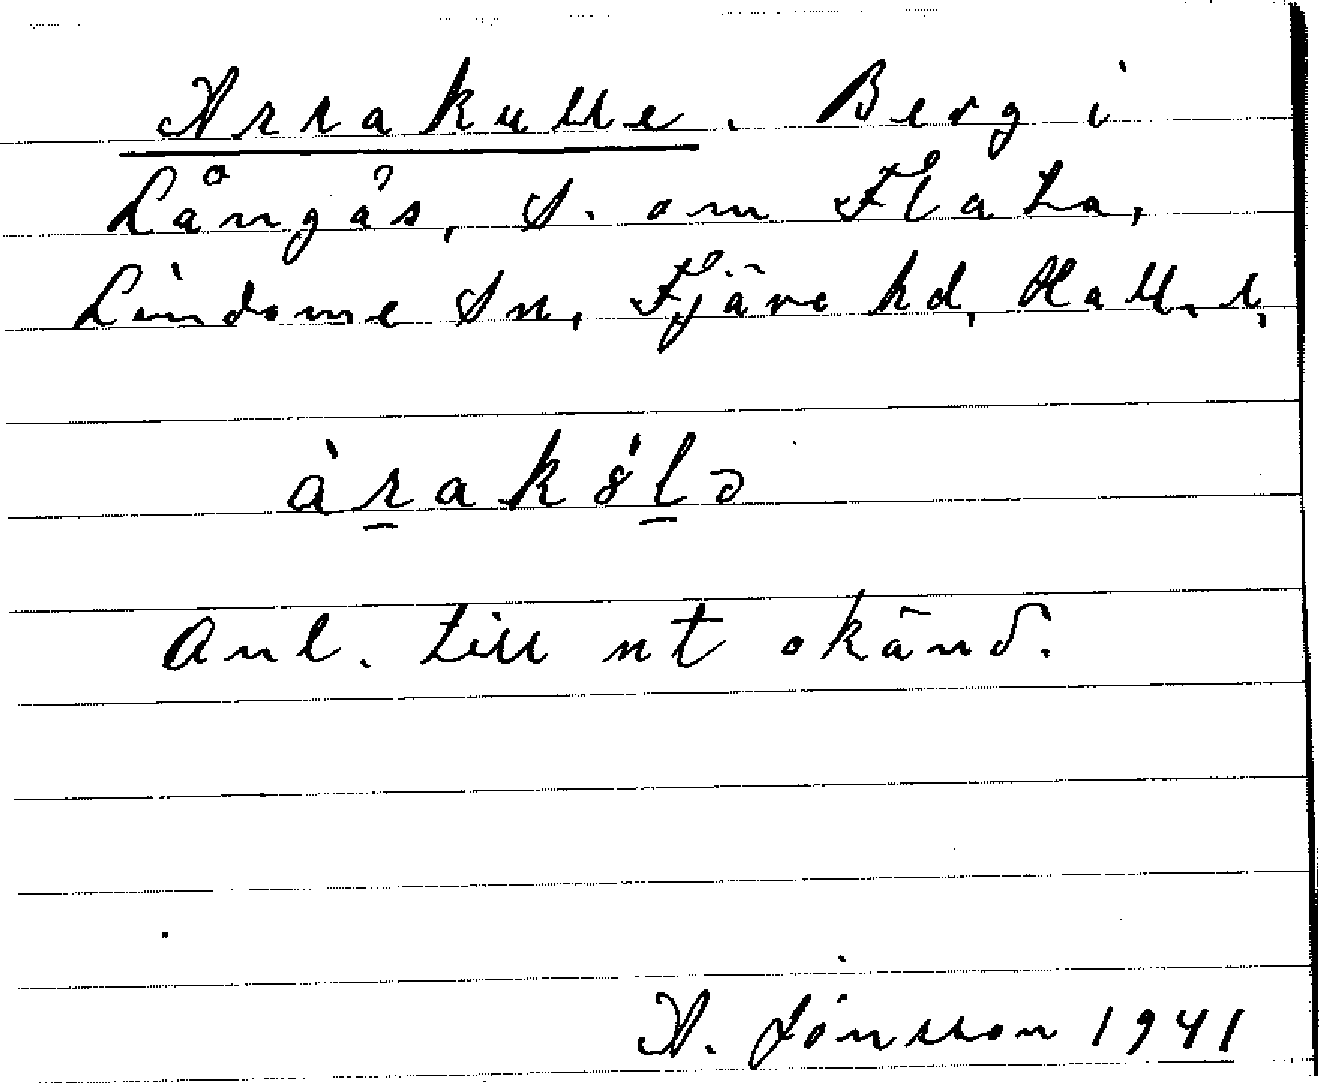 Arrakulle. Berg i
Långås, S. om Flaha,
Lindome Sn, Fjäre hd, Hall. l,
àrakȣ́lə
Anl. till nt okänd.
A. Jönsson 1941